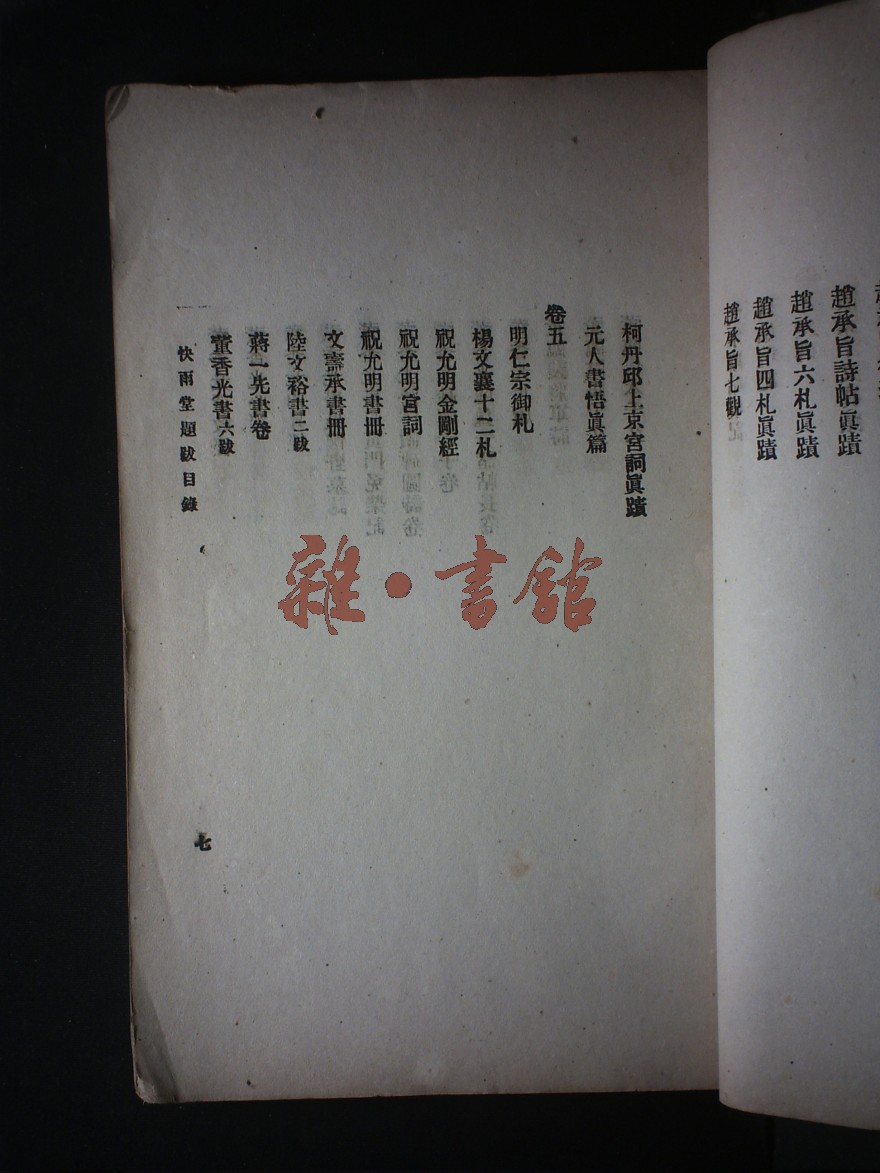 趙承旨詩帖眞蹟
趙承旨六札眞蹟
趙承旨四札眞蹟
趙承旨七觀
柯丹邱上京宮詞眞蹟
元人書悟眞篇
卷五
明仁宗御札
楊文襄十二札
祝允明金剛經
祝允明宮詞
祝允明書冊
文壽承書冊
陸文裕書二跋
蔣一先書卷
董香光書六跋
快雨堂題跋目錄
七
雜·書館